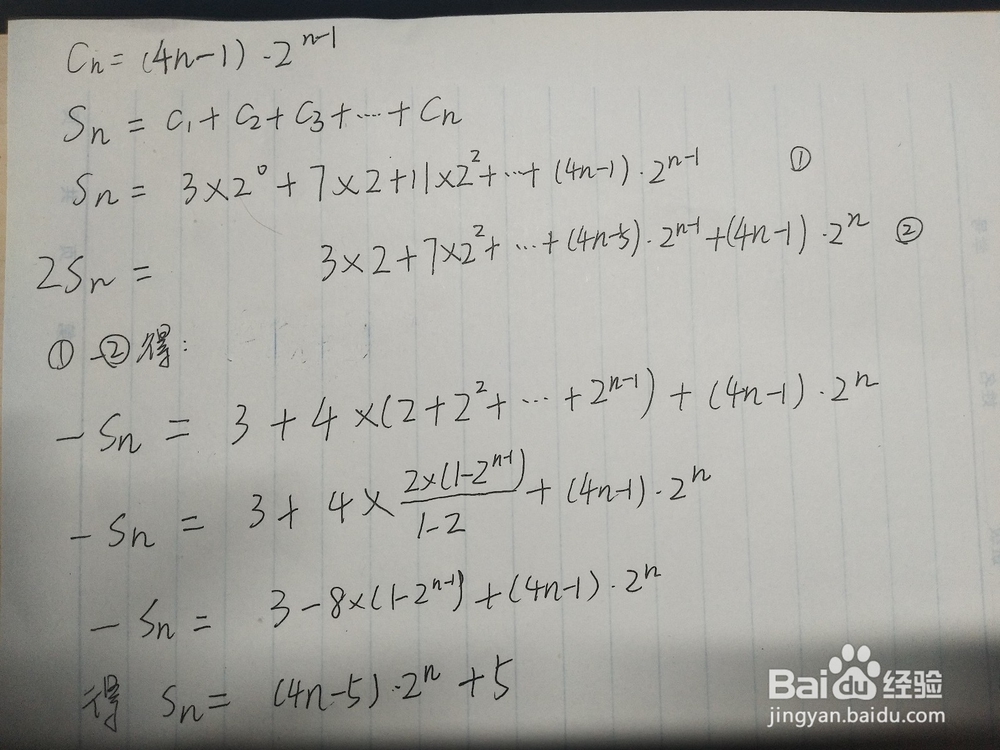 Cn = (4n-1)·2^{n-1}
Sn = C₁ + C₂ + C₃ + ··· + Cn
Sn = 3×2⁰ + 7×2 + 11×2² + ··· + (4n-1)·2^{n-1} ①
2Sn = 3×2 + 7×2² + ··· + (4n-5)·2^{n-1} + (4n-1)·2^n ②
① - ② 得:
-Sn = 3 + 4×(2 + 2² + ··· + 2^{n-1}) + (4n-1)·2^n
-Sn = 3 + 4× \frac{2×(1-2^{n-1})}{1-2} + (4n-1)·2^n
-Sn = 3 - 8×(1-2^{n-1}) + (4n-1)·2^n
得 Sn = (4n-5)·2^n + 5
Baidu 经验
jingyan.baidu.com